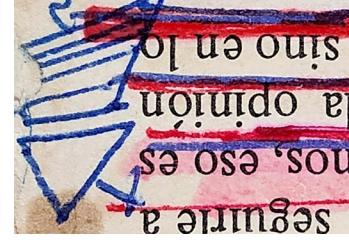 seguirle a
nos, eso es
la opinión
sino en lo